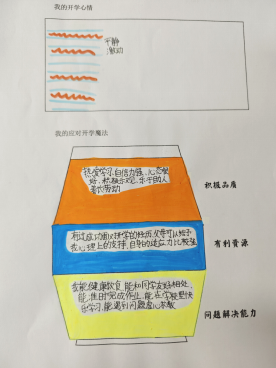 我的开学心情
平静
激动
我的应对开学魔法
热爱学习，自信力强，心态较
好，积极乐观，乐于助人
着忆劳动
积极品质
有过成功面对开学的经历，父母可以给予
我心理上的支持，自身的适应力比较强
有利资源
我能健康饮食，能和同学友好相处，
能准时完成作业，能在学校里快
乐学习，能遇到问题虚心求教
问题解决能力